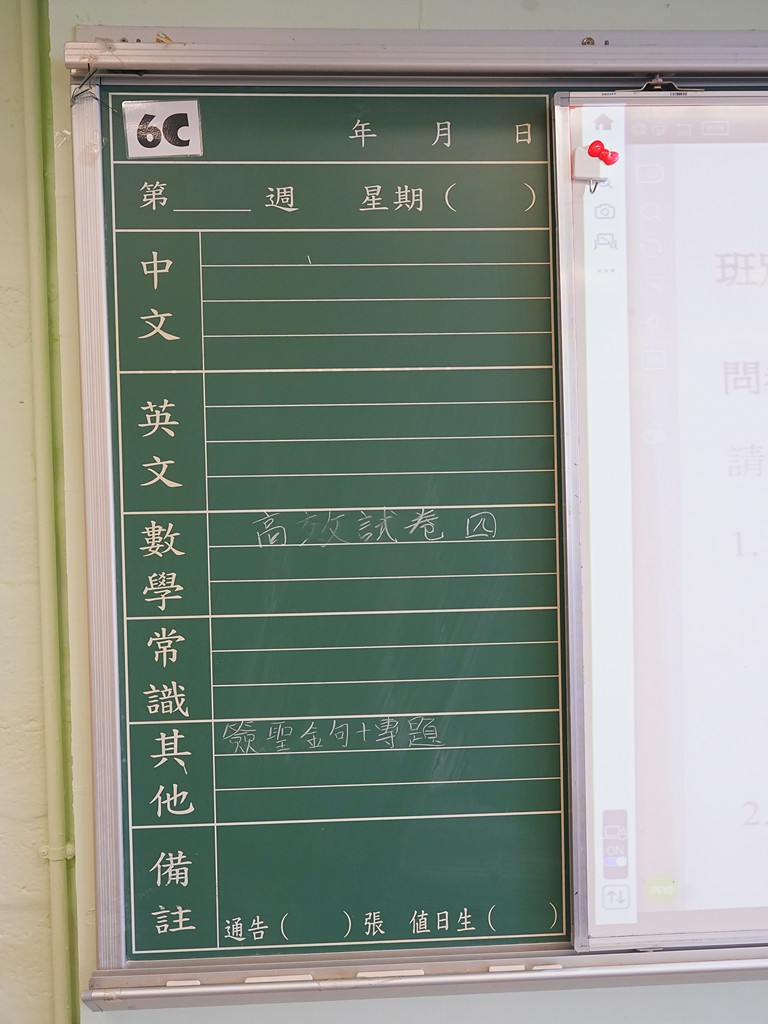 6C
年 月 日
第____週 星期( )
中文
英文
數學 高效試卷四
常識
其他 簽聖金句+專題
備註
通告( )張 值日生( )
班
問
請
1.
2.
ON